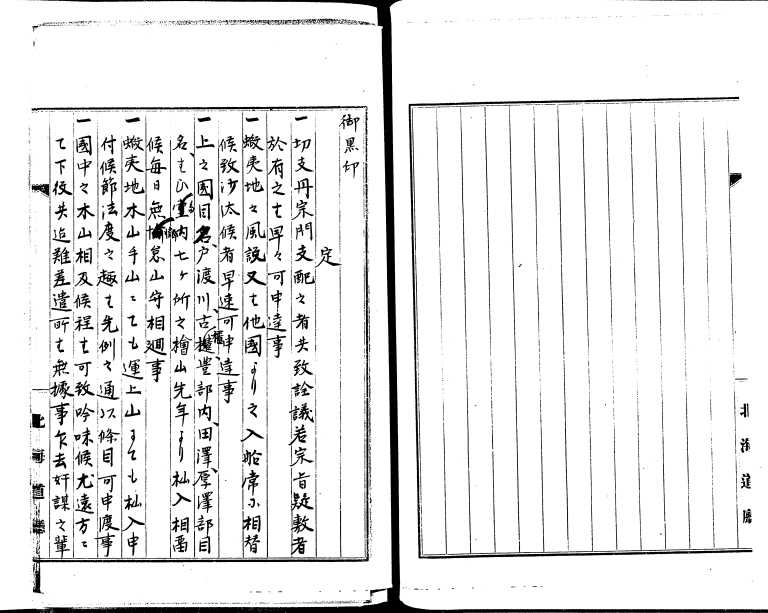 御黒印
定
一切支丹宗門支配之者共致詮議若宗旨疑敷者
於有之ハ早々可申達事
一蝦夷地之風説又ハ他國より之入船常ニ相替
候致沙汰候者早速可申達事
一上之國目名、戸渡川古櫃、豊部内、田澤、厚澤部目
名、もひ内七ヶ所之檜山先年より杣入相留
候毎日無懈怠山守相廻事
一蝦夷地木山手山ニても運上山ニても杣入申
付候節法度之趣ハ先例之通以條目可申度事
一國中之木山相及候程ハ可致吟味候尤遠方ニ
て下役共迄難差遣所ハ無據事乍去奸謀之輩
北海道廳
北海道廳